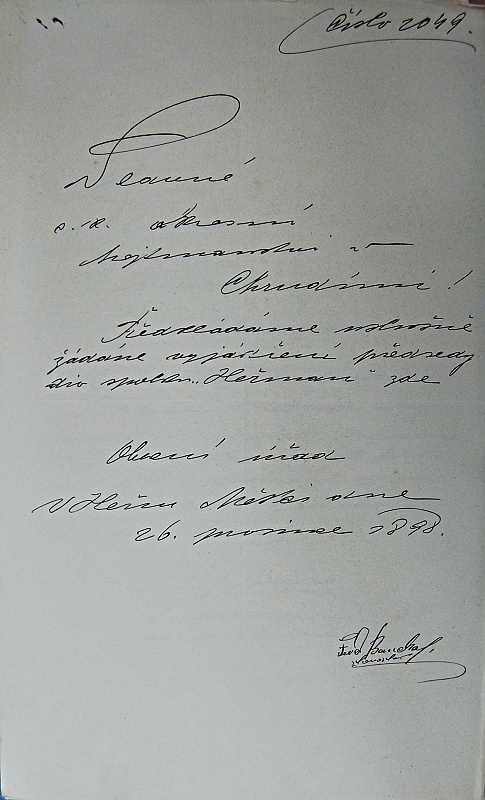 Číslo 2049.
Slavné
c. k. okresní
hejtmanství v
Chrudimi!
Předkládáme uctivě
žádané vyjádření předsedy
div spolku „Heřman" zde
Obecní úřad
V Heřm Městci dne
26. prosince 1898.